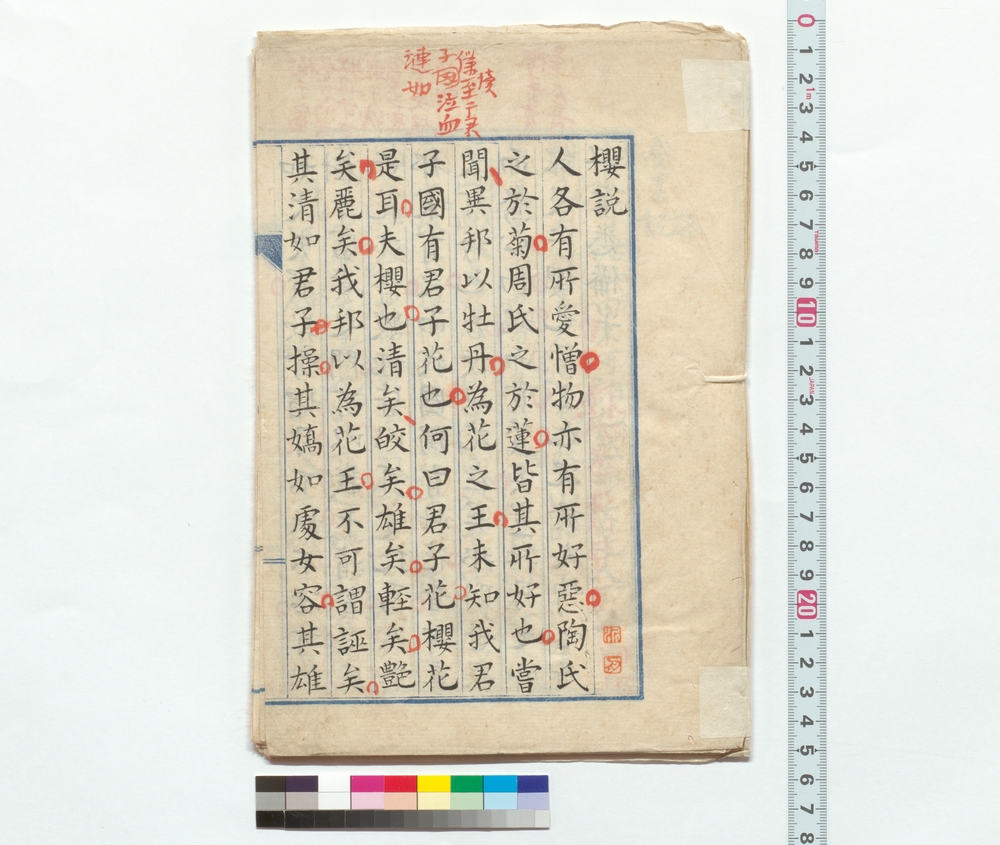 僕至君
子国泣血
漣如
櫻説
人各有所愛憎物亦有所好惡陶氏
之於菊周氏之於蓮皆其所好也嘗
聞異邦以牡丹為花之王未知我君
子國有君子花也何曰君子花櫻花
是耳夫櫻也清矣皎矣雄矣輕矣艷
矣麗矣我邦以為花王不可謂誣矣
其清如君子操其嬌如處女容其雄
0 1 2 3 4 5 6 7 8 9 10 1 2 3 4 5 6 7 8 9 20 1 2 3 4 5 6 7 8
1m
JAPAN